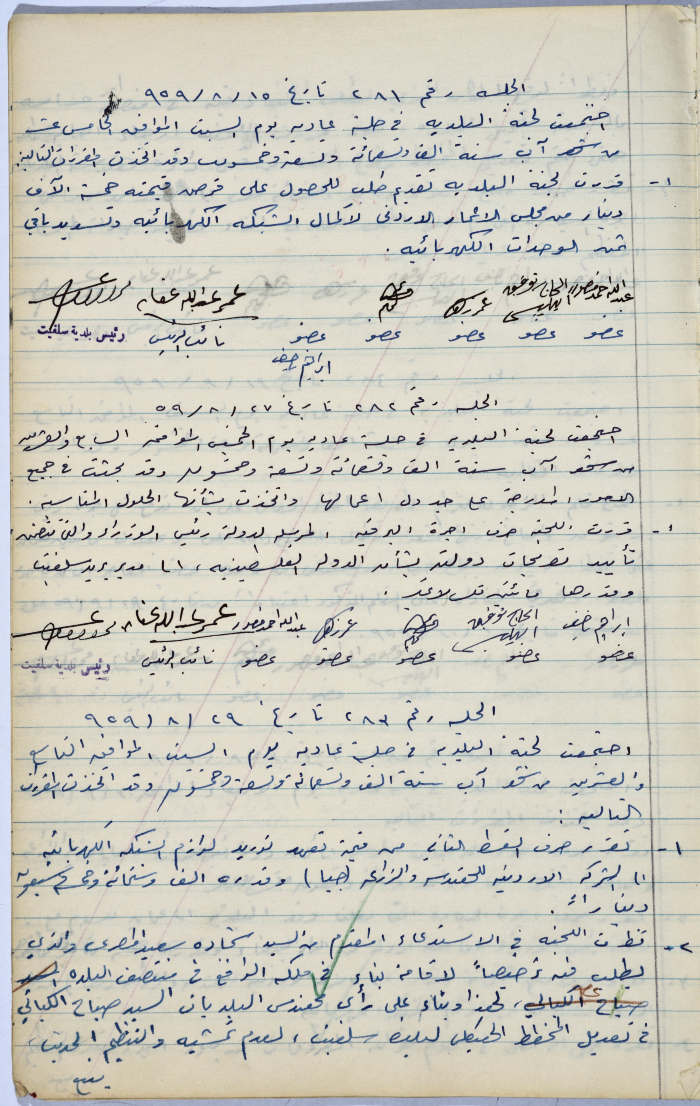 الجلسه رقم ٢٨١ تاريخ ١٥/٨/٩٥٩
اجتمعت لجنة البلديه في جلسة عاديه يوم السبت الموافق الخامس عشر
من شهر آب سنة الف وتسعمائة وتسعة وخمسون وقد اتخذت المقررات التاليه
١- قررت لجنة البلديه تقديم طلب للحصول على قرض قيمته خمسة آلاف
دينار من مجلس الاعمار الاردني لاكمال الشبكه الكهربائيه وتسديد باقي
ثمن الوحدات الكهربائيه .
عبدالله احمد منصور الحاج توفيق عمر عبدالله عفانه
عضو عضو عضو عضو عضو نائب الرئيس رئيس بلدية سلفيت
ابراهيم
الجلسه رقم ٢٨٢ تاريخ ٢٧/٨/٥٩
اجتمعت لجنة البلديه في جلسة عاديه يوم الخميس الموافق السابع والعشرين
من شهر آب سنة الف وتسعمائة وتسعة وخمسون وقد بحثت في جميع
الامور المدرجة على جدول اعمالها واتخذت بشأنها الحلول المناسبه .
١- قررت اللجنه صرف اجرة البرقيه المرسله لدولة رئيس الوزراء والتي تتضمن
تأييد تصريحات دولته بشأن الدوله الفلسطينيه ، الى مدير بريد سلفيت
وقدرها مائتي فلس لا غير .
ابراهيم الحاج توفيق عبدالله احمد منصور عمر عبدالله عفانه
عضو عضو عضو عضو عضو نائب الرئيس رئيس بلدية سلفيت
الجلسه رقم ٢٨٣ تاريخ ٢٩/٨/٩٥٩
اجتمعت لجنة البلديه في جلسة عاديه يوم السبت الموافق التاسع
والعشرين من شهر آب سنة الف وتسعمائة وتسعة وخمسون وقد اتخذت المقررات
التاليه :
١- تقرر صرف القسط الثاني من قيمة تعهد توريد لوازم الشبكه الكهربائيه
الى الشركه الاردنيه للهندسه والزراعه (جيا) وقدره الف وستمائة وخمسه وسبعون
دينارا .
٢- نظرت اللجنه في الاستدعاء المقدم من السيد شحاده سعيد المصري والذي
يطلب فيه ترخيصاً لاقامة بناء في ملكه الواقع في منتصف البلده السيد
صباح الكيالي ، لهذا وبناء على رأي مهندس البلديات السيد صباح الكيالي
في تعديل المخطط الهيكلي لبلدة سلفيت ، لعدم تمشيه والتنظيم الحديث ،
يتبع